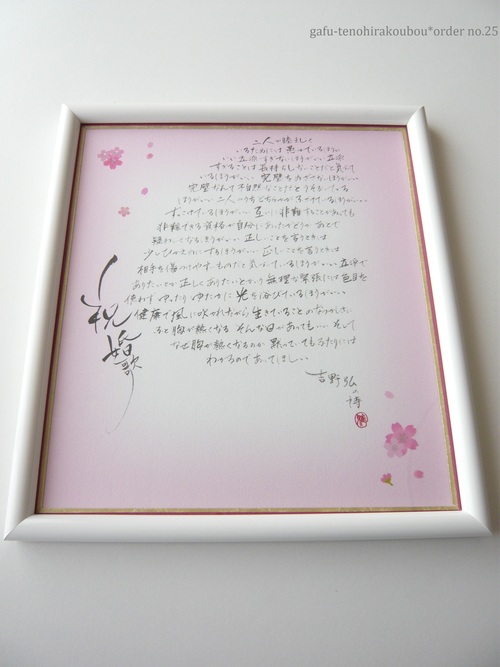 gafu-tenohirakoubou*order no.25
二人が睦じく
いるためには愚かでいるほうが
いい 立派すぎないほうがいい 立派
すぎることは長持ちしないことだと気付いて
いるほうがいい 完璧をめざさないほうがいい
完璧なんて不自然なことだとうそぶいている
ほうがいい 二人のうちどちらかがふざけているほうがいい
ずっこけているほうがいい 互いに非難することがあっても
非難できる資格が自分にあったかどうか あとで
疑わしくなるほうがいい 正しいことを言うときは
少しひかえめにするほうがいい 正しいことを言うときは
相手を傷つけやすいものだと気付いているほうがいい 立派で
ありたいとか 正しくありたいとかいう 無理な緊張には 色目を
使わず ゆったり ゆたかに 光を浴びているほうがいい
健康で 風に吹かれながら 生きていることのなつかしさに
ふと胸が熱くなる そんな日があってもいい そして
なぜ胸が熱くなるのか 黙っていてもふたりには
わかるのであってほしい
祝婚歌
吉野弘の詩